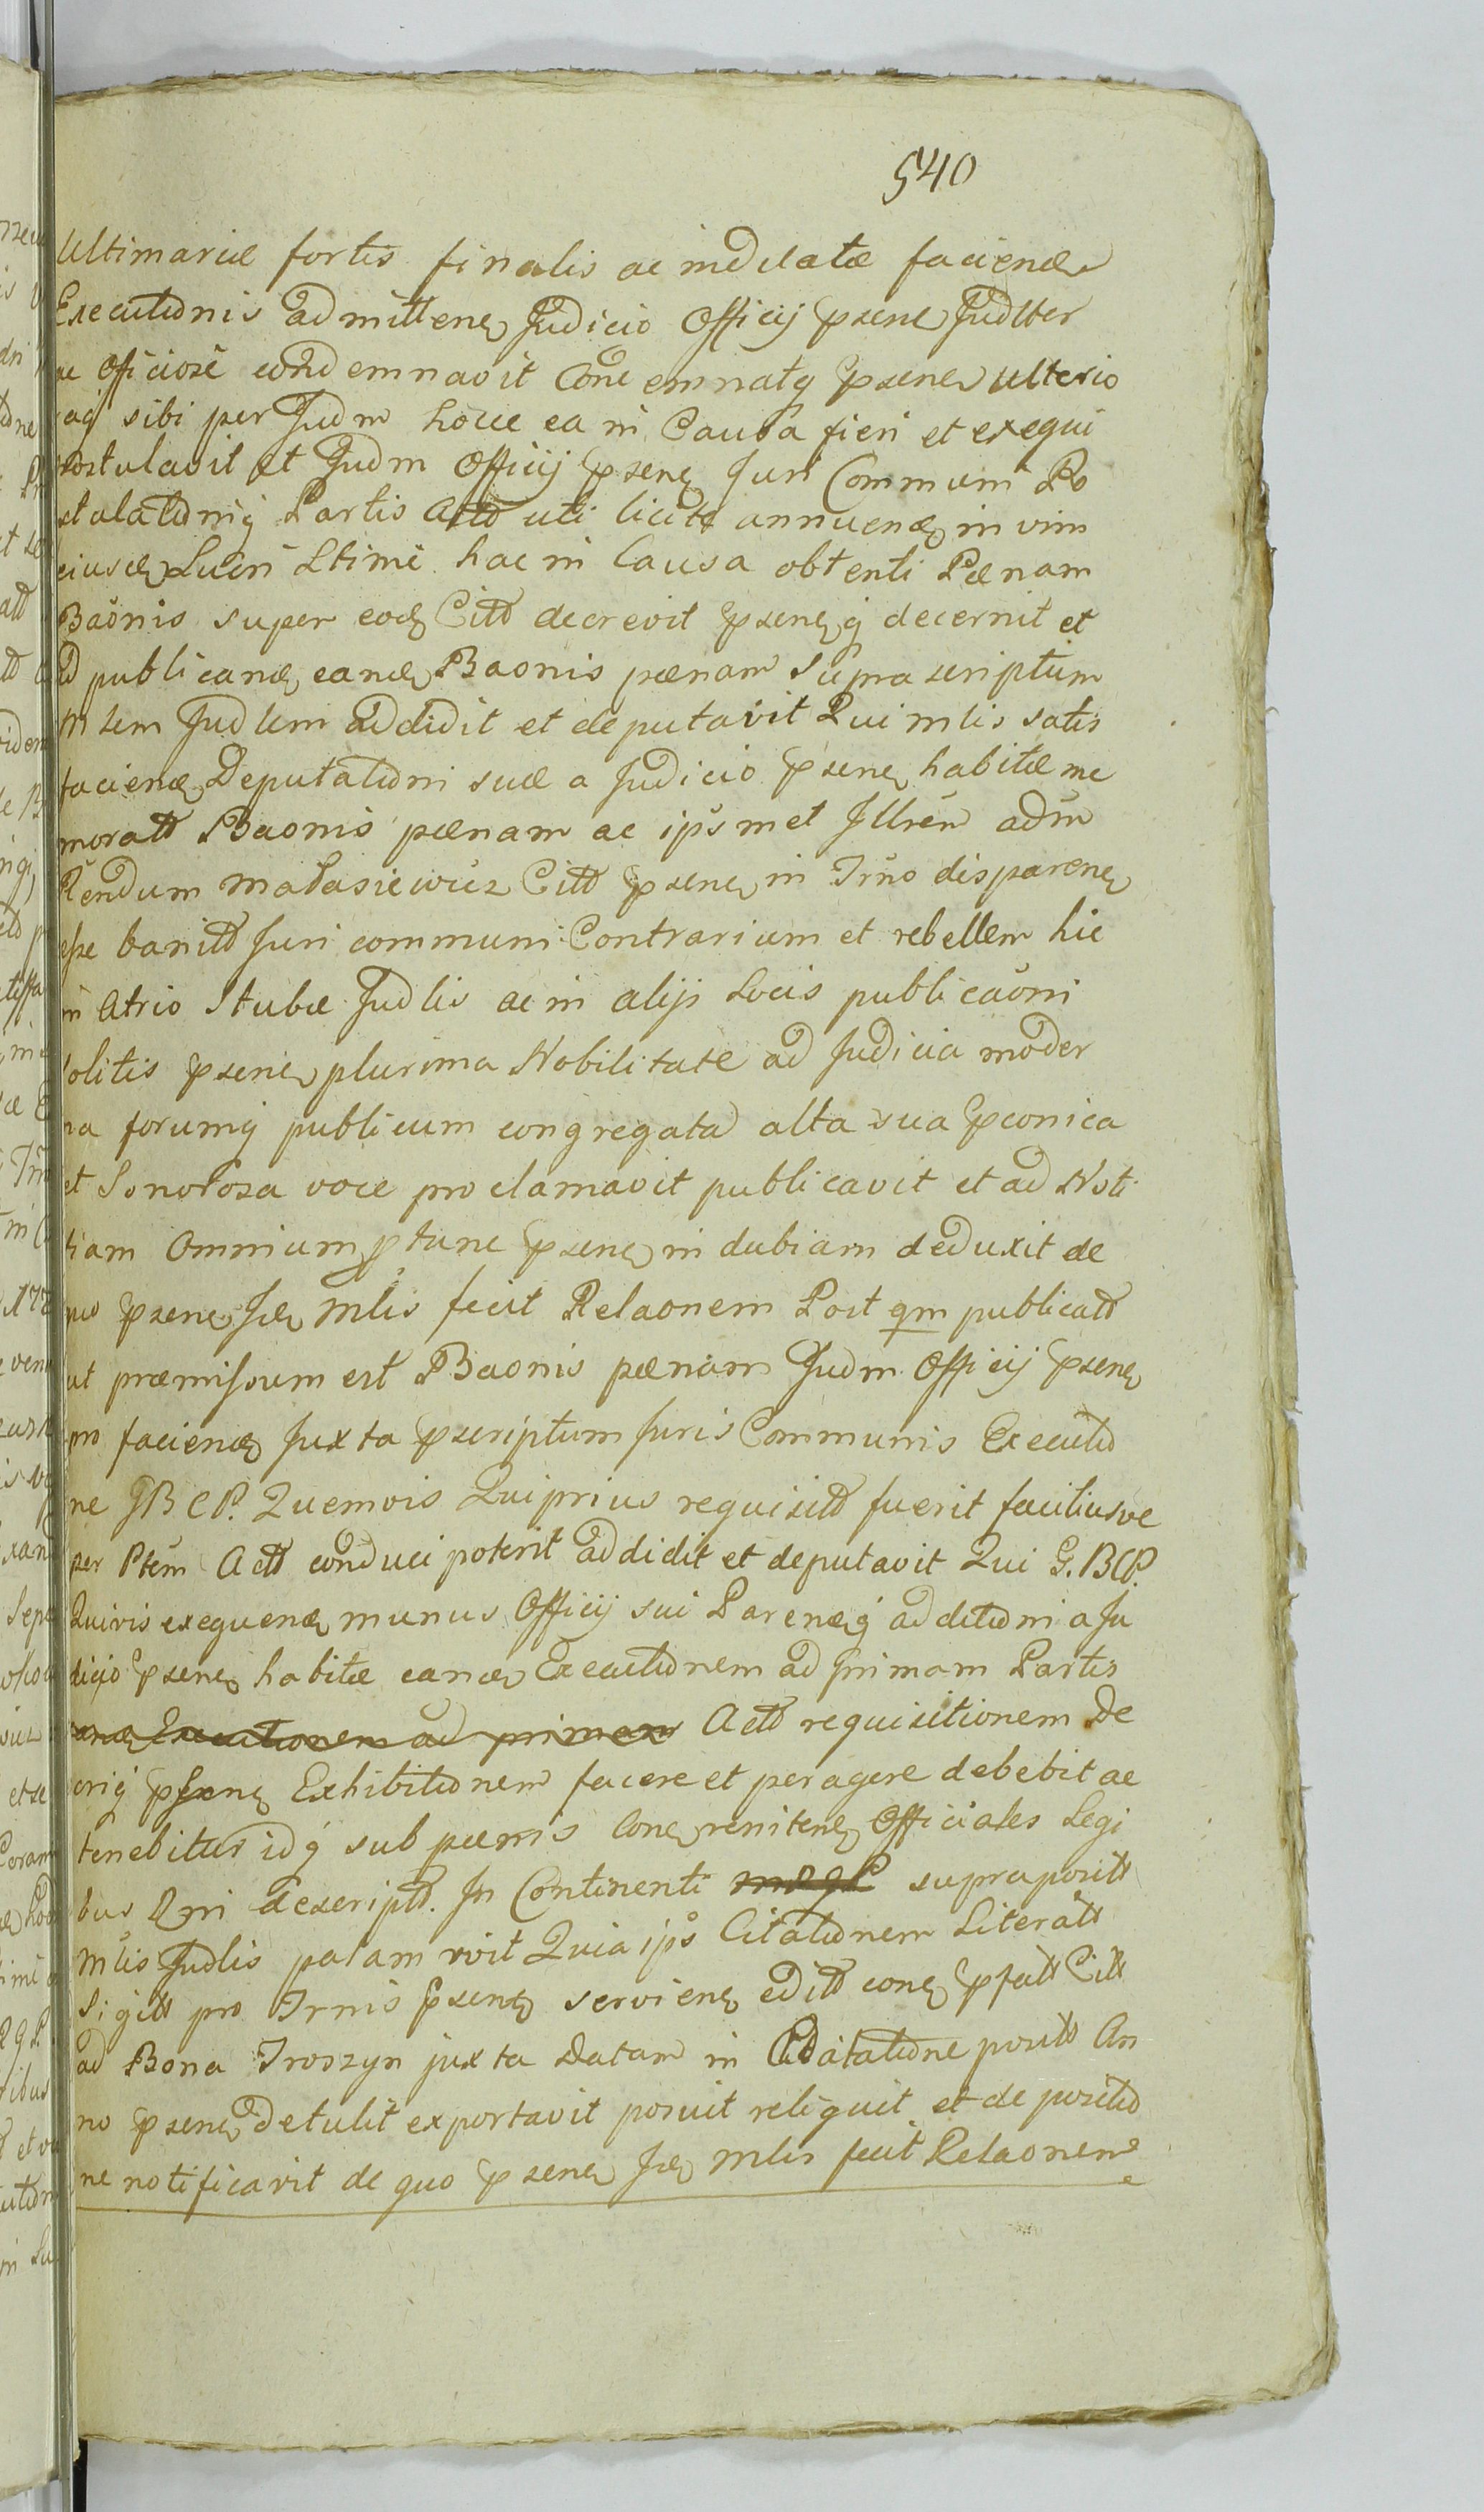 540
Ultimariæ fortis finalis ac indilatæ faciendæ
Executionis admittend Judicio Officij psene Judlter
ac Officiosè condemnavit Condemnatq psene ulterio
raq sibi per Judm hocce ea in Causa fieri et exequi
Postulavit et Judm Officij psene Juri Communi Po
stulationiq Partis Actt uti licite annuend in vim
eiusd Lucri Ltimè hac in Causa obtenti Pænam
Baonis super eod Citt decrevit pseneq decernit et
ad publicand eand Baonis pænam Supra scriptum
Mlem Judlem addidit et deputavit Qui mlis satis
faciend Deputationi suæ a Judicio psene habitæ me
moratt Baonis pænam ac ipsmet Illrem adm
Rendum Matasiewicz Citt psene in Trno disparen
esse banitt Juri communi Contrarium et rebellem hic
in Atrio Stubæ Judlis ac in alijs Locis publicaõni
solitis psene plurima Nobilitate ad Judicia moder
na forumq publicum congregata alta sua pconica
et Sonorosa voce proclamavit publicavit et ad Noti
tiam Omnium ptunc psene in dubiam deduxit de
quo psene Id Mlis fecit Relaonem Post qm publicatt
ut præmissum est Baonis pænam Judm Officij psene
pro faciend Juxta pscriptum Juris Communis Executio
ne GBCP. Quemvis Qui prius requisitt fuerit faciliusve
per Ptem Actt conduci poterit addidit et deputavit Qui G.BCP.
Quivis exequend munus Officij sui Parendq additioni a Ju
dicio psene habitæ eand Executionem ad primam Partis
eand Executionem ad primam Actt requisitionem De
criq psene Exhibitionem facere et peragere debebit ac
tenebitur idq sub pænis Con reniten Officiales Legi
bus Rni descriptt. In Continenti supra positt
Mlis Judlis palam rvit Quia ips Citationem Literatt
Sigitt pro Trnis psene servien editt con pfatt Citt
ad Bona Troszyn juxta Datam in Citatione positt An
no psene detulit exportavit posuit reliquit et de positio
ne notificavit de quo psene Id Mlis fecit Relaonem